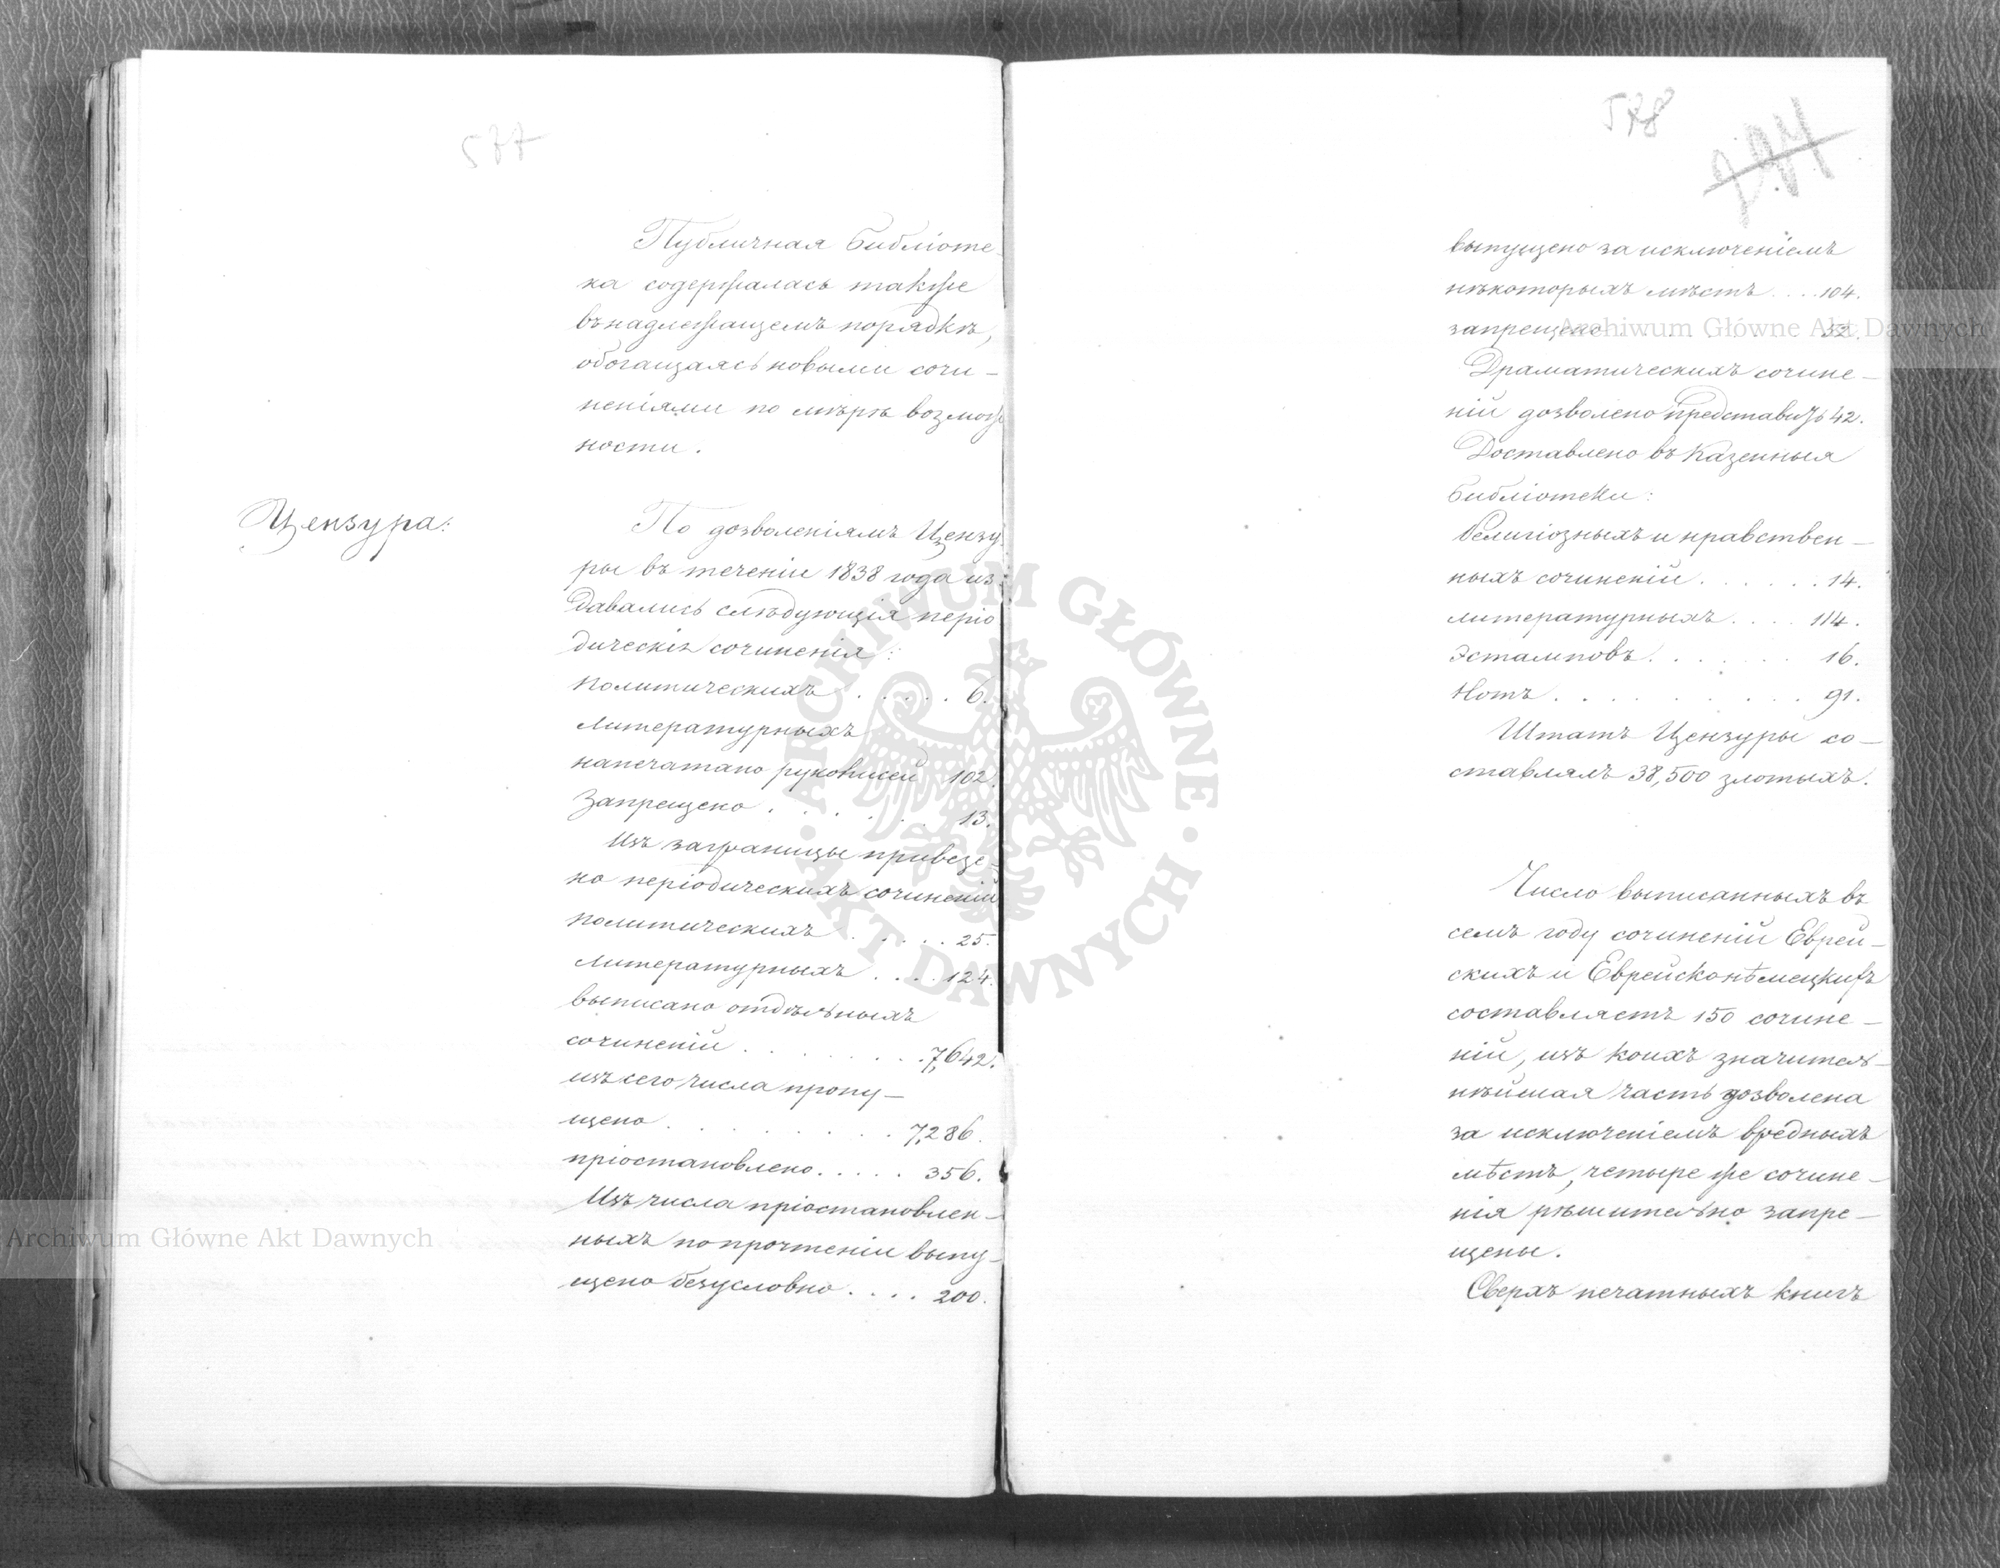 577
Публичная Библіоте-
ка содержалась также
въ надлежащемъ порядкѣ,
обогащаясь новыми сочи-
неніями по мѣрѣ возмож
ности.
Цензура:
По дозволеніямъ Цензу-
ры въ теченіи 1838 года из-
давались слѣдующія періо
дическія сочиненія:
политическихъ . . . . . 6.
Литературныхъ
напечатано рукописей 102.
Запрещено . . . . . . 13.
Изъ заграницы привезе-
но періодическихъ сочиненій
политическихъ . . . . . 25.
Литературныхъ . . . . 124.
выписано отдѣльныхъ
сочиненій . . . . . . . . 7,642.
изъ сего числа пропу-
щено . . . . . . . . . 7,286.
пріостановлено . . . . . 356.
Изъ числа пріостановлен-
ныхъ по прочтеніи выпу-
щено безусловно . . . . 200.
578
274
выпущено за исключеніемъ
нѣкоторыхъ мѣстъ . . . . 104.
запрещено . . . . . . . . . 52.
Драматическихъ сочине-
ній дозволено представить 42.
Доставлено въ Казенныя
Библіотеки:
Религіозныхъ и нравствен-
ныхъ сочиненій . . . . . . 14.
литературныхъ . . . . 114.
Эстамповъ . . . . . . . 16.
Нотъ . . . . . . . . . . 91.
Штатъ Цензуры со-
ставлялъ 38,500 злотыхъ.
Число выписанныхъ въ
семъ году сочиненій Еврей-
скихъ и Еврейсконѣмецкихъ
составляетъ 150 сочине-
ній, изъ коихъ значитель-
нѣйшая часть дозволена
за исключеніемъ вредныхъ
мѣстъ, четыре же сочине-
нія рѣшительно запре-
щены.
Сверхъ печатныхъ книгъ
Archiwum Główne Akt Dawnych
Archiwum Główne Akt Dawnych
ARCHIWUM GŁÓWNE · AKT DAWNYCH ·